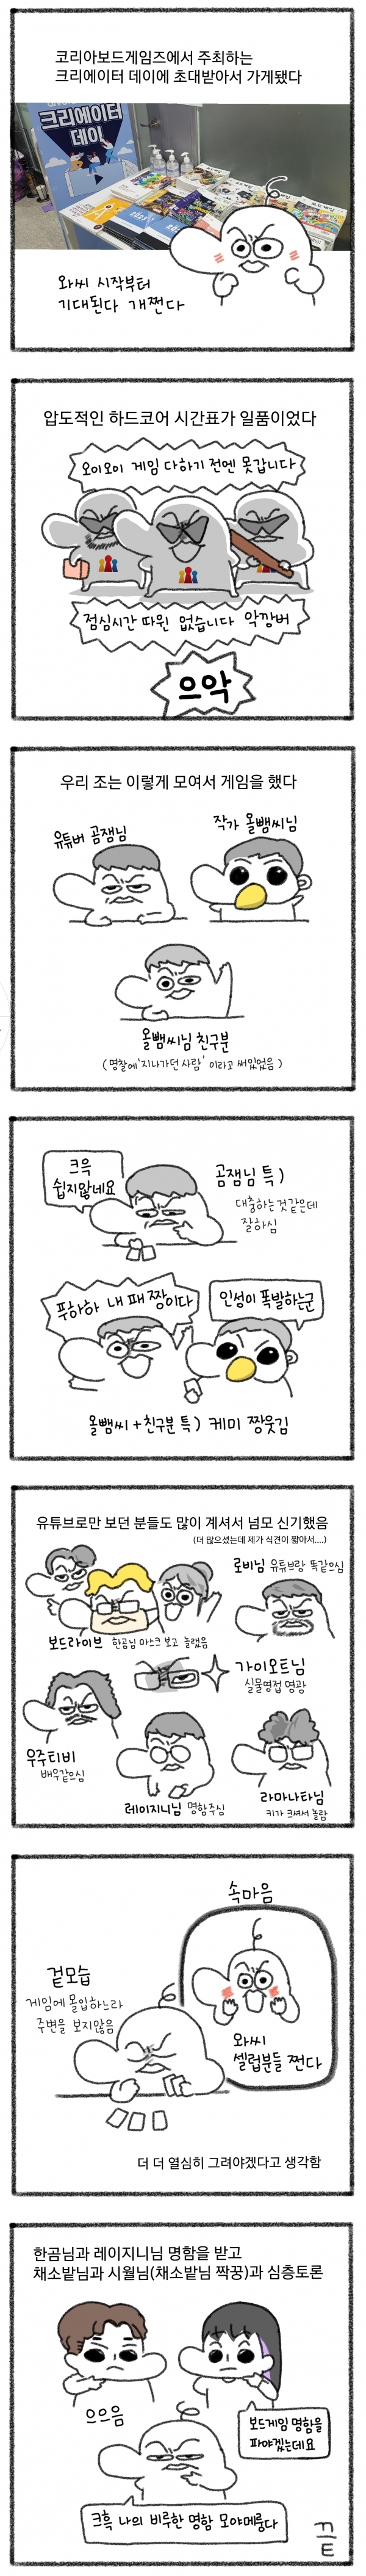 코리아보드게임즈에서 주최하는
크리에이터 데이에 초대받아서 가게됐다
크리에이터
데이
와씨 시작부터
기대된다 개쩐다
압도적인 하드코어 시간표가 일품이었다
오이오이 게임 다하기 전엔 못갑니다
점심시간 따윈 없습니다 악깡버
으악
우리 조는 이렇게 모여서 게임을 했다
유튜버 곰잼님
작가 올빼씨님
올뺌씨님 친구분
(명찰에 '지나가던 사람' 이라고 써있었음)
크윽
쉽지않네요
곰잼님 특)
대충하는것같은데
잘하심
푸하하 내 패 짱이다
인성이 폭발하는군
올뺌씨+친구분 특) 케미 짱웃김
유튜브로만 보던 분들도 많이 계셔서 넘모 신기했음
(더 많으셨는데 제가 식견이 짧아서....)
로비님 유튜브랑 똑같으심
보드라이브 한곰님 마스크 보고 놀랬음
가이오트님
실물영접 영광
우주티비
배우같으심
레이지니님 명함주심
라마나타님
키가 크셔서 놀람
속마음
겉모습
게임에 몰입하느라
주변을 보지않음
와씨
셀럽분들 쩐다
더 더 열심히 그려야겠다고 생각함
한곰님과 레이지니님 명함을 받고
채소밭님과 시월님(채소밭님 짝꿍)과 심층토론
으으음
보드게임 명함을
파야겠는데요
크흑 나의 비루한 명함 모야메룽다
끄
트